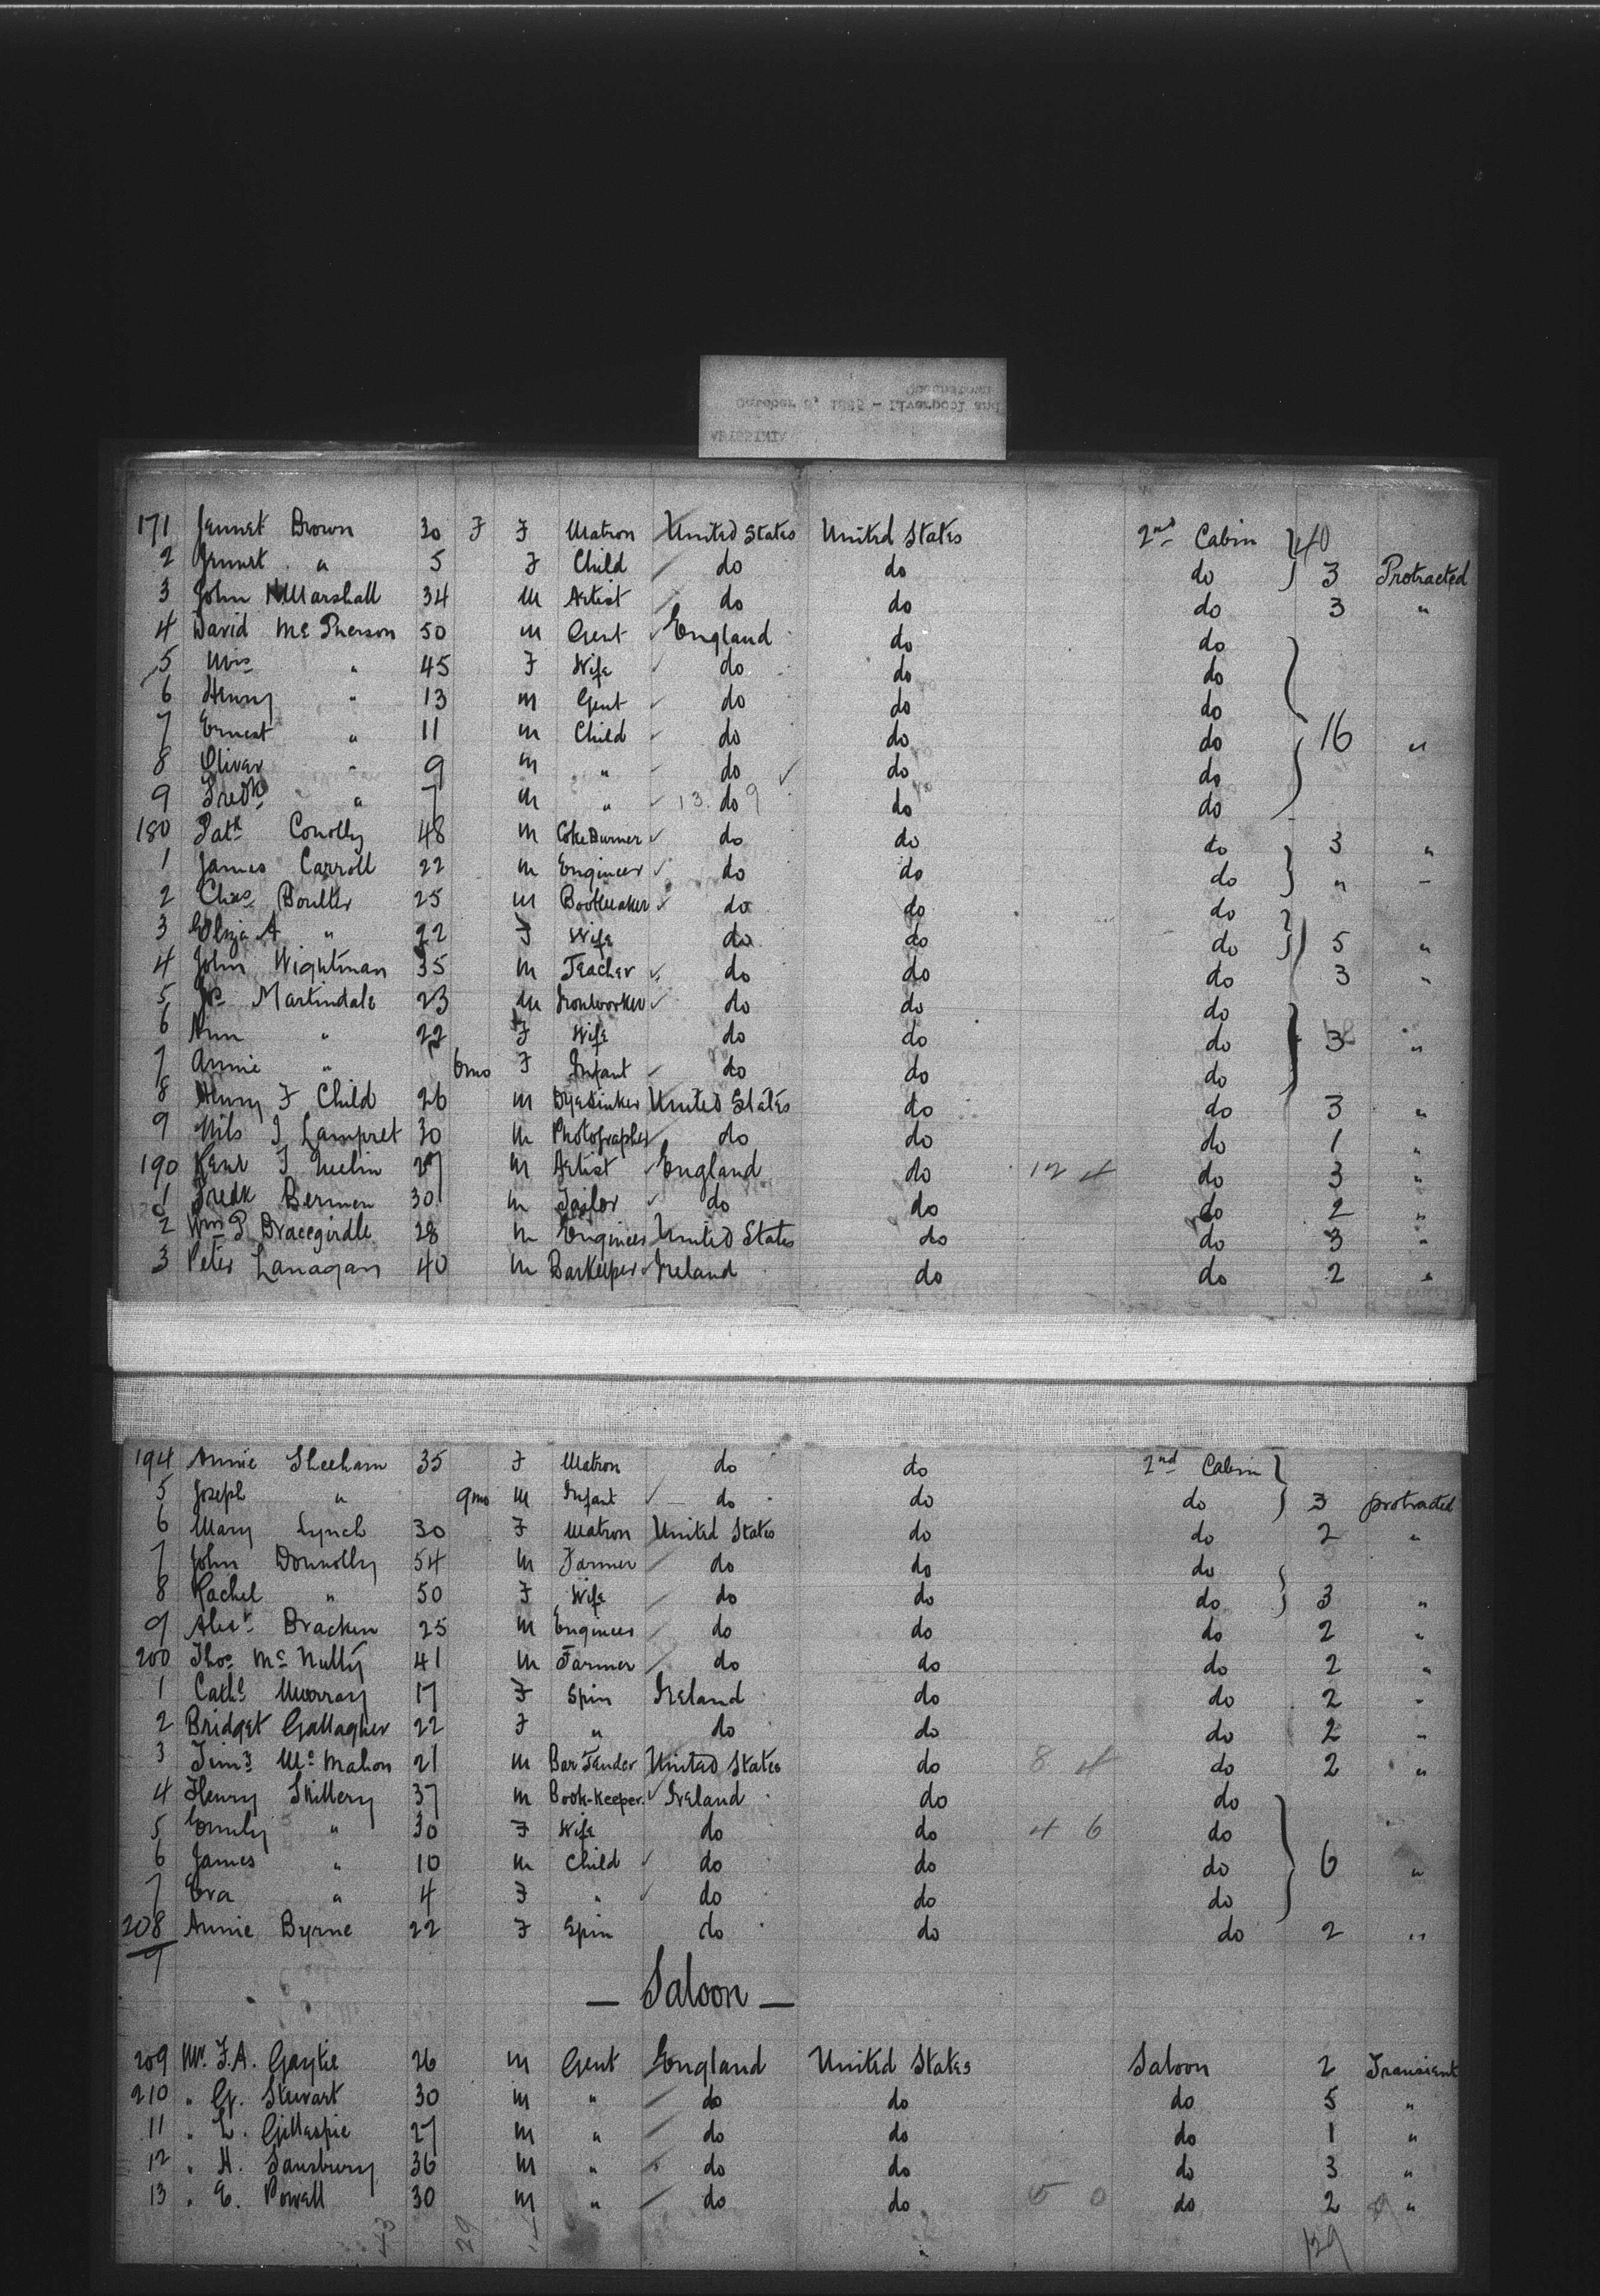 October 6, 1885 - Liverpool and
Queenstown
ABYSSINIA
171 Jennet Brown 30 F F Matron United States United States 2nd Cabin } 40
2 Jennet " 5 F Child do do do } 3 Protracted
3 John Marshall 34 M Artist do do do 3 "
4 David McPherson 50 M Gent England do do
5 Mrs " 45 F Wife do do do
6 Henry " 13 M Gent do do do
7 Ernest " 11 M Child do do do 16 "
8 Oliver " 9 M " do do do
9 Fredk " 7 M " 13 do 9 do do
180 Patk Conolly 48 M Coke Burner do do do 3 "
1 James Carroll 22 M Engineer do do do " "
2 Chas Boulter 25 M Bootmaker do do do
3 Eliza A " 22 F Wife do do do 5 "
4 John Wightman 35 M Teacher do do do 3 "
5 Jos Martindale 23 M Ironworker do do do
6 Ann " 22 F Wife do do do 3 "
7 Annie " 6mo F Infant do do do
8 Henry F Child 26 M Dyesinker United States do do 3 "
9 Nils J Lampret 30 M Photographer do do do 1 "
190 27 M Artist England do 12 4 do 3 "
1 Fredk Bermen 30 M Tailor do do do 2 "
2 Wm P Bracegirdle 28 M Engineer United States do do 3 "
3 Peter Lanagan 40 M Barkeeper Ireland do do 2 "
194 Annie Sheehan 35 F Matron do do 2nd Cabin
5 Joseph " 9mo M Infant do do do 3 protracted
6 Mary Lynch 30 F Matron United States do do 2 "
7 John Donnolly 54 M Farmer do do do
8 Rachel " 50 F Wife do do do 3 "
9 Alexr Bracken 25 M Engineer do do do 2 "
200 Thos McNulty 41 M Farmer do do do 2 "
1 Cathe Murray 17 F Spin Ireland do do 2 "
2 Bridget Gallagher 22 F " do do do 2 "
3 Timy McMahon 21 M Bar Tender United States do 8 4 do 2 "
4 Henry Skillery 37 M Book-Keeper Ireland do do
5 Emily " 30 F Wife do do 4 6 do
6 James " 10 M Child do do do 6 "
7 Eva " 4 F " do do do
208 Annie Byrne 22 F Spin do do do 2 "
9
— Saloon —
209 Mr. F.A. Gaytie 26 M Gent England United States Saloon 2 Transient
210 " G. Stewart 30 M " do do do 5 "
11 " L. Gillespie 27 M " do do do 1 "
12 " H. Sansbury 36 M " do do do 3 "
13 " E. Powell 30 M " do do 5 0 do 2 "
29 129